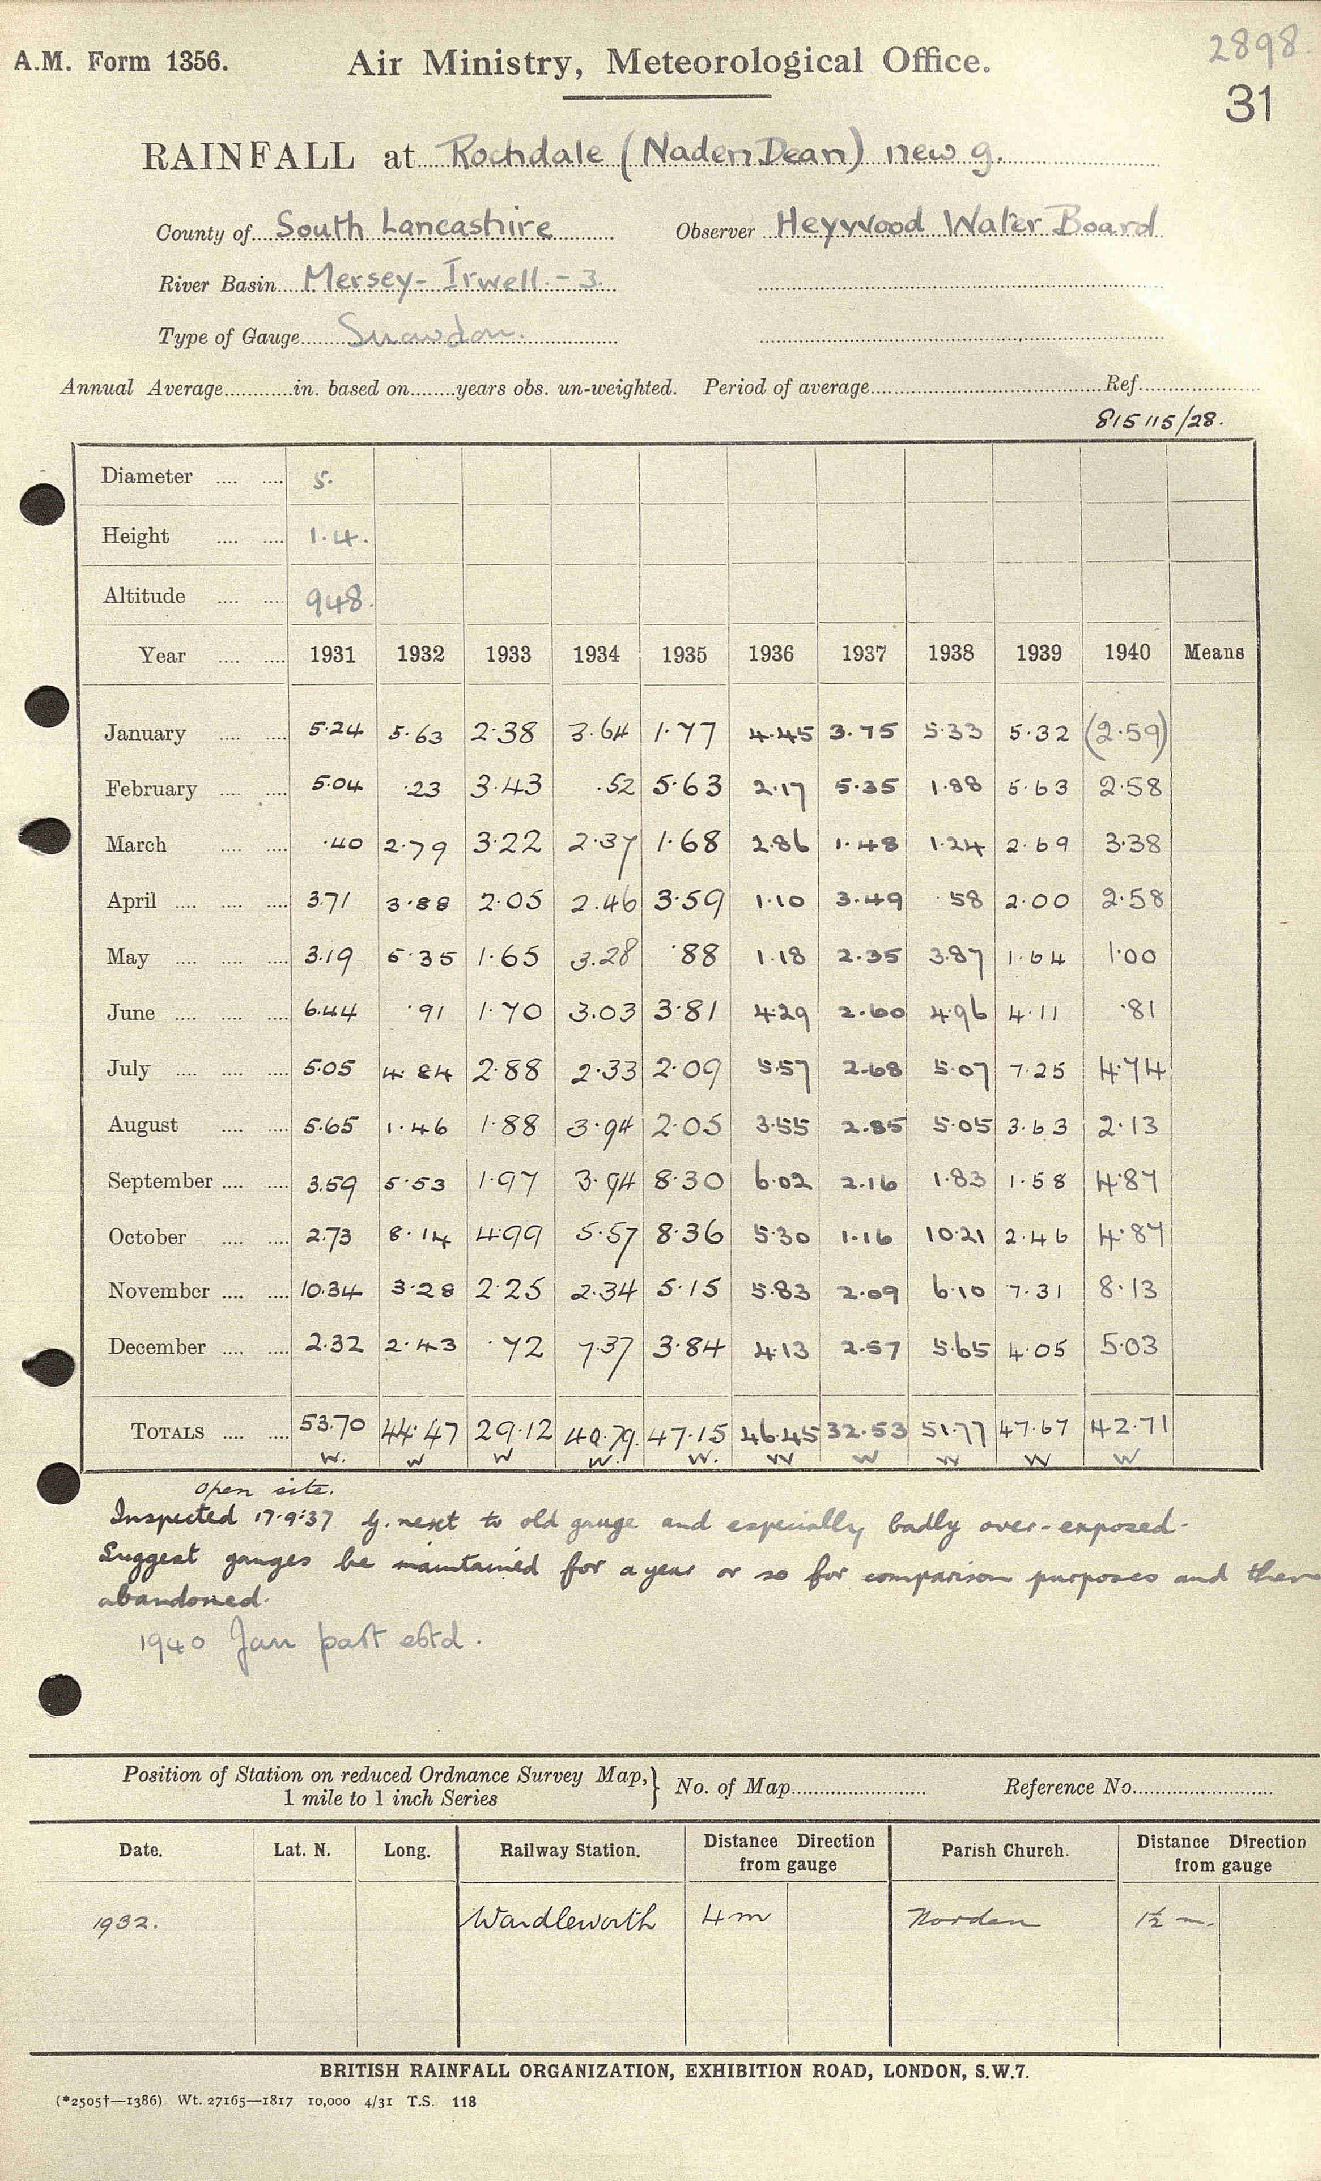 2898.
A.M. Form 1356. Air Ministry, Meteorological Office.
31
RAINFALL at Rochdale (Naden Dean) new g.
County of South Lancashire Observer Heywood Water Board
River Basin Mersey - Irwell - 3.
Type of Gauge Snowdon.
Annual Average in. based on years obs. un-weighted. Period of average Ref.
815115/28.
Diameter 5.
Height 1.4.
Altitude 948.
Year 1931 1932 1933 1934 1935 1936 1937 1938 1939 1940 Means
January 5.24 5.63 2.38 3.64 1.77 4.45 3.75 5.33 5.32 (2.59)
February 5.04 .23 3.43 .52 5.63 2.17 5.35 1.88 5.63 2.58
March .40 2.79 3.22 2.37 1.68 2.86 1.48 1.24 2.69 3.38
April 3.71 3.88 2.05 2.46 3.59 1.10 3.49 .58 2.00 2.58
May 3.19 5.35 1.65 3.28 .88 1.18 2.35 3.87 1.64 1.00
June 6.44 .91 1.70 3.03 3.81 4.29 2.60 4.96 4.11 .81
July 5.05 4.84 2.88 2.33 2.09 5.57 2.68 5.07 7.25 4.74
August 5.65 1.46 1.88 3.94 2.05 3.55 2.85 5.05 3.63 2.13
September 3.59 5.53 1.97 3.94 8.30 6.02 2.16 1.83 1.58 4.87
October 2.73 8.14 4.99 5.57 8.36 5.30 1.16 10.21 2.46 4.87
November 10.34 3.28 2.25 2.34 5.15 5.83 2.09 6.10 7.31 8.13
December 2.32 2.43 .72 7.37 3.84 4.13 2.57 5.65 4.05 5.03
TOTALS 53.70 44.47 29.12 40.79. 47.15 46.45 32.53 51.77 47.67 42.71
W. W W W. W. W W W W W
open site.
Inspected 17.9.37 g. next to old gauge and especially badly over-exposed.
Suggest gauges be maintained for a year or so for comparison purposes and then
abandoned.
1940 Jan part estd.
Position of Station on reduced Ordnance Survey Map, } No. of Map Reference No.
1 mile to 1 inch Series
Date. Lat. N. Long. Railway Station. Distance Direction Parish Church. Distance Direction
from gauge from gauge
1932. Wardleworth 4 m Norden 1½ m.
BRITISH RAINFALL ORGANIZATION, EXHIBITION ROAD, LONDON, S.W.7.
(*2505†—1386) Wt. 27165—1817 10,000 4/31 T.S. 118